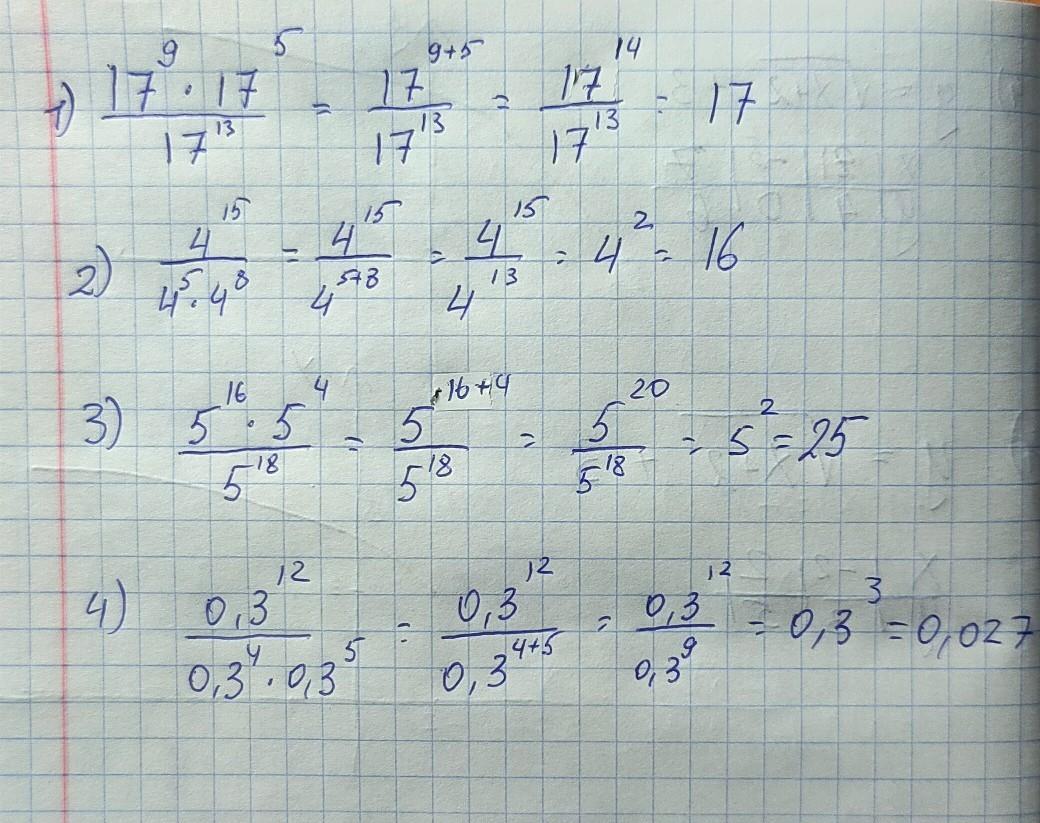 1) (17^9 · 17^5)/(17^13) = (17^(9+5))/(17^13) = (17^14)/(17^13) = 17
2) (4^15)/(4^5 · 4^8) = (4^15)/(4^(5+8)) = (4^15)/(4^13) = 4^2 = 16
3) (5^16 · 5^4)/(5^18) = (5^(16+4))/(5^18) = (5^20)/(5^18) = 5^2 = 25
4) (0,3^12)/(0,3^4 · 0,3^5) = (0,3^12)/(0,3^(4+5)) = (0,3^12)/(0,3^9) = 0,3^3 = 0,027